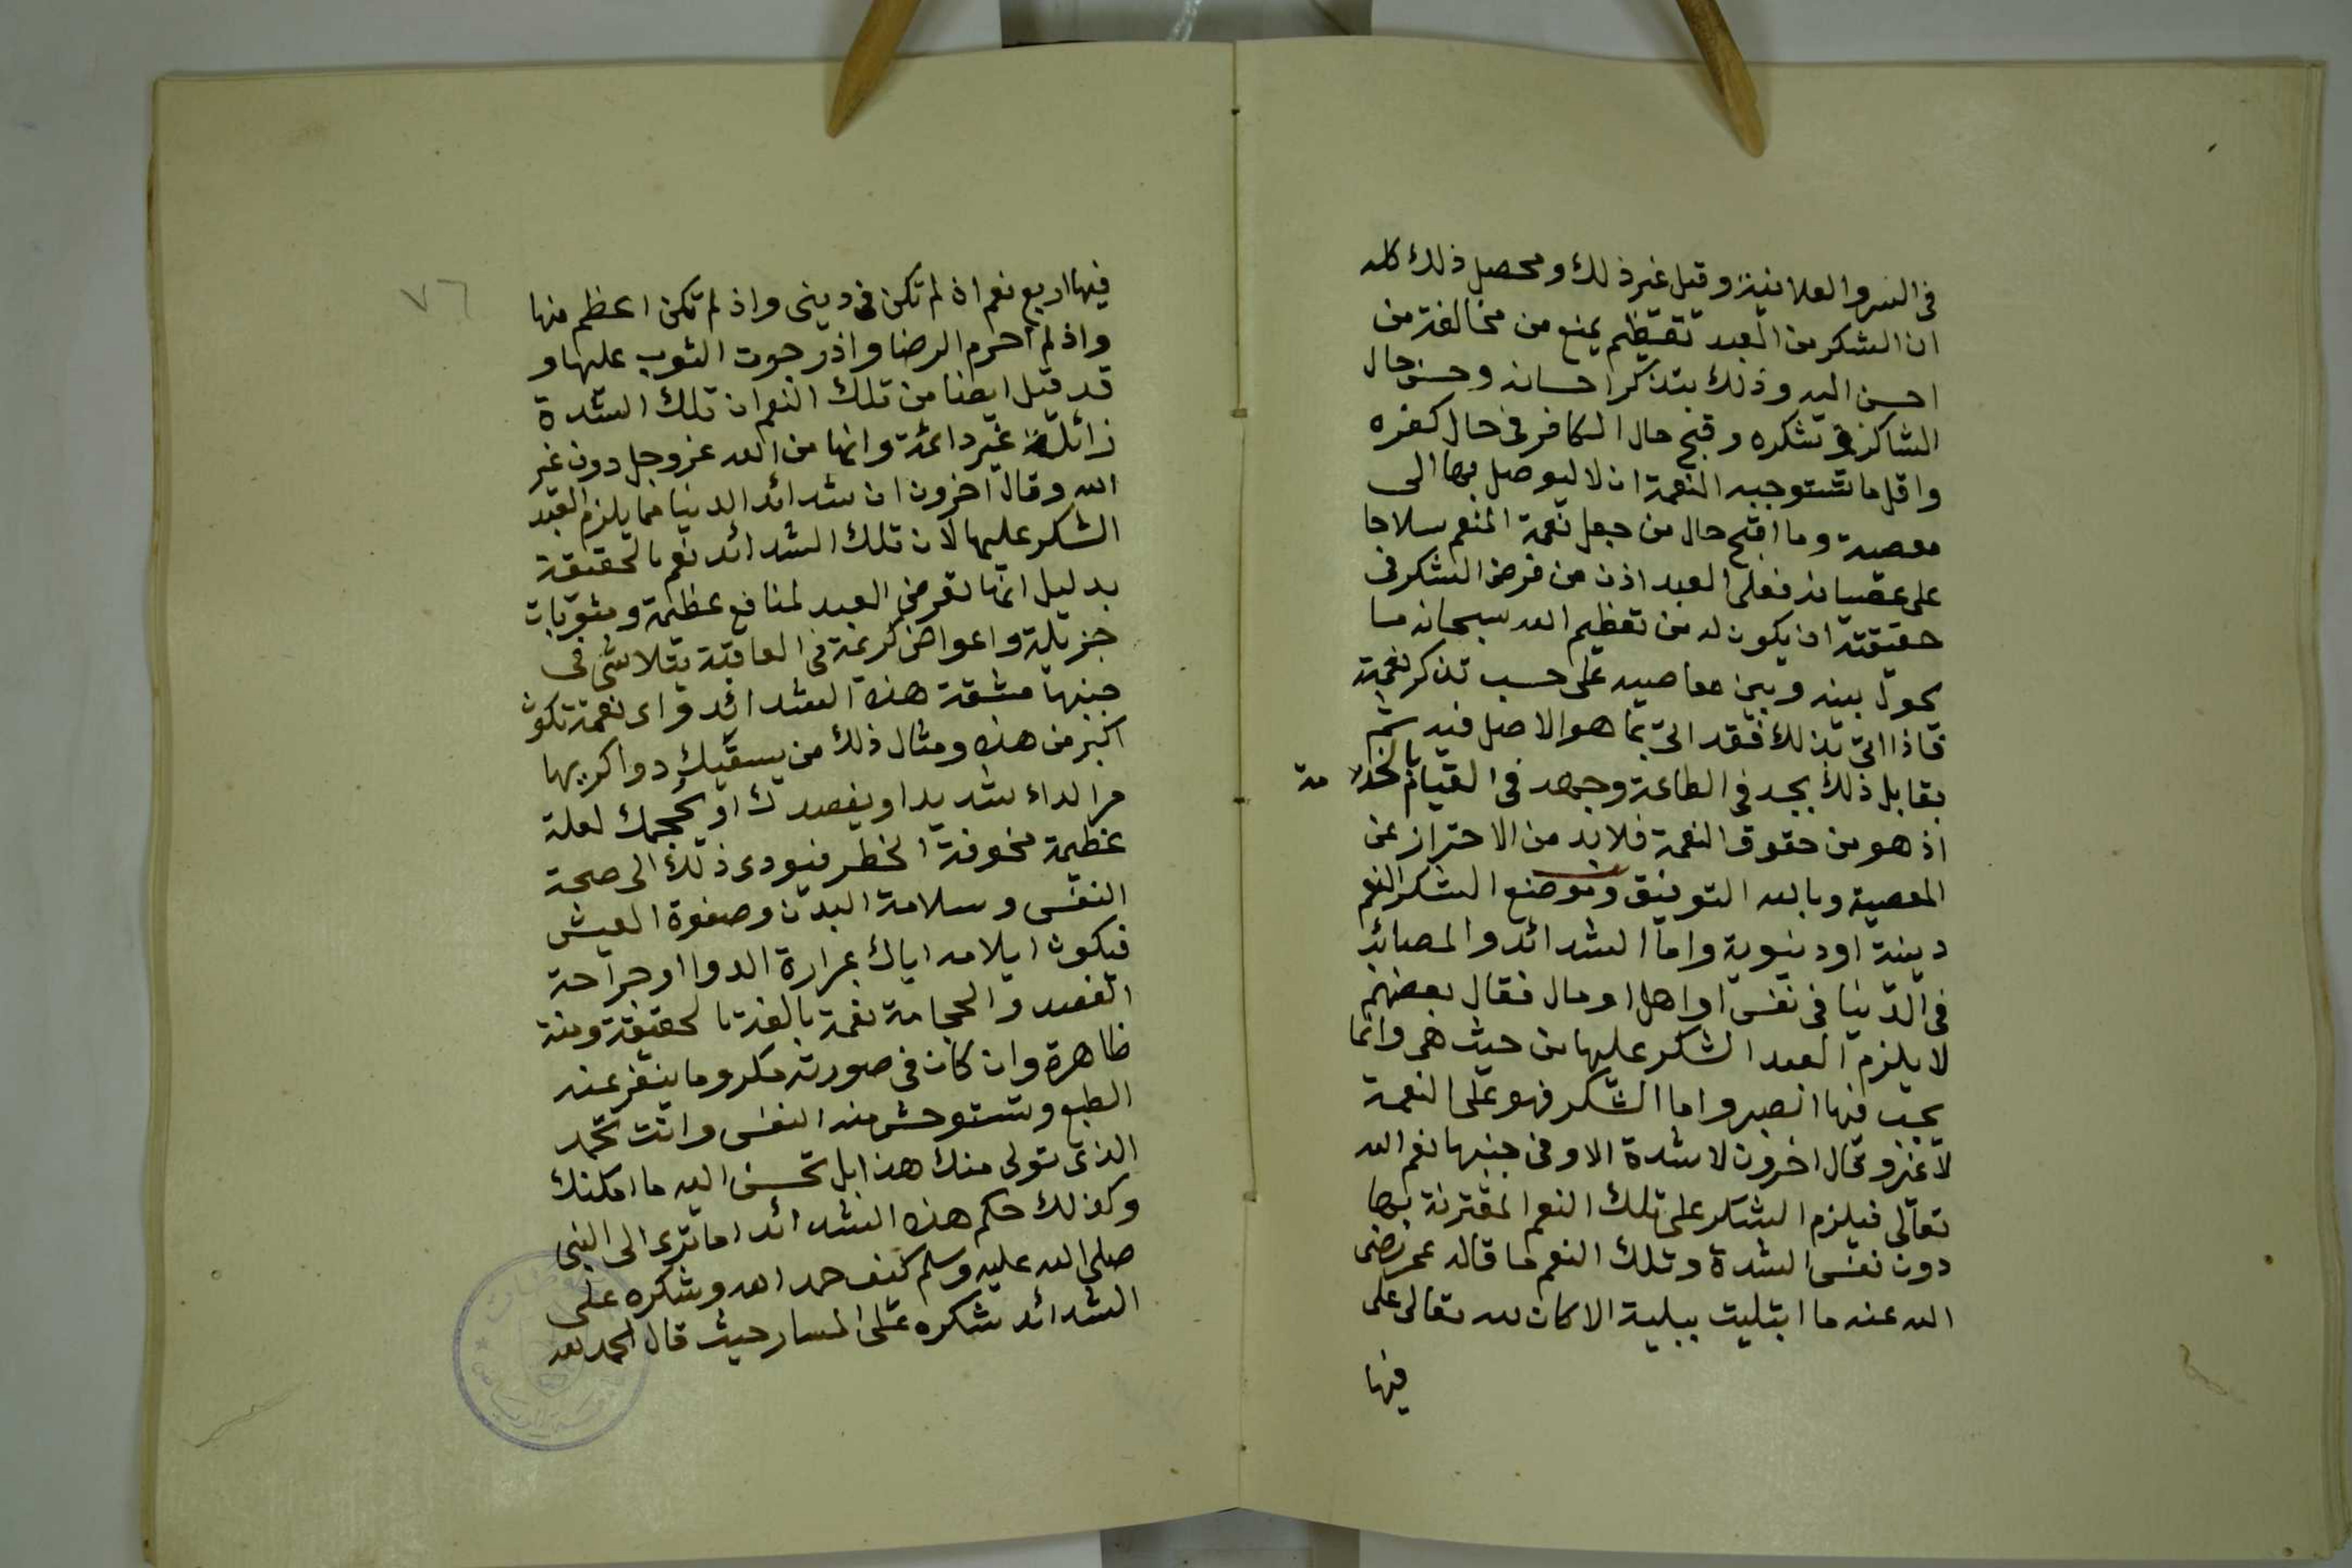 فى السر والعلانية وقيل غير ذلك ومحصل ذلك كله
ان الشكر من العبد تعظيم يمنع من مخالفة من
احسن اليه وذلك بتذكر احسانه وحسن حال
الشاكر فى شكره وقبح حال الكافر فى حال كفره
واقل ما تستوجبه النعمة ان لا ليوصل بها الى
معصية وما اقبح حال من جعل نعمة المنعم سلاحا
على عصيانه فعلى العبد اذن من فرض الشكر فى
حقيقته ان يكون له من تعظيم الله سبحانه ما
يحول بينه وبين معاصيه على حسب تذكر نعمة
فاذا اتى بذلك فقد اتى بما هو الاصل فيه ثم
يقابل ذلك بجد فى الطاعة وجهد فى القيام بالخدمة
اذ هو من حقوق النعمة فلا بد من الاحتراز عن
المعصية وبالله التوفيق وموضع الشكر النعم
دينية او دنيوية واما الشدائد والمصائب
فى الدنيا فى نفس او اهل او مال فقال بعضهم
لا يلزم العبد الشكر عليها من حيث هى وانما
يجب فيها الصبر واما الشكر فهو على النعمة
لا غير وقال اخرون لا شدة الا وفى جنبها نعم الله
تعالى فيلزم الشكر على تلك النعم المقترنة بها
دون نفس الشدة وتلك النعم ما قاله عمر رضى
الله عنه ما ابتليت ببلية الا كان لله تعالى على
فيها
٧٦
فيها اربع نعم اذ لم تكن فى دينى واذ لم تكن اعظم منها
واذ لم احرم الرضا واذ رجوت الثوب عليها و
قد قيل ايضا من تلك النعم ان تلك الشدة
زائلة غير دائمة وانها من الله عز وجل دون غير
الله وقال آخرون ان شدائد الدنيا مما يلزم العبد
الشكر عليها لان تلك الشدائد نعم بالحقيقة
بدليل انها تعرض العبد لمنافع عظيمة ومثوبات
جزيلة واعواض كريمة فى العاقبة يتلاشى فى
جنبها مشقة هذه الشدائد واى نعمة تكون
اكبر من هذه ومثال ذلك من يسقيك دوا كريها
مرا لداء شديد او يفصدك او يحجمك لعلة
عظيمة مخوفة الخطر فيودى ذلك الى صحة
النفس وسلامة البدن وصفوة العيش
فيكون ايلامه اياك بمرارة الدوا او جراحة
الفصد والحجامة نعمة بالغة بالحقيقة ومنة
ظاهرة وان كان فى صورته مكروها ينفر عنه
الطبع وتستوحش منه النفس وانت تحمد
الذى تولى منك هذا بل تحسن اليه ما امكنك
وكذلك حكم هذه الشدائد اما ترى الى النبى
صلى الله عليه وسلم كيف حمد الله وشكره على
الشدائد شكره على المسار حيث قال الحمد لله